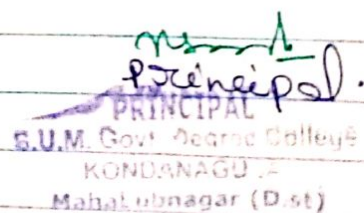 Principal.
PRINCIPAL
S.U.M. Govt Degree College
KONDANAGU
Mahabubnagar (D.st)